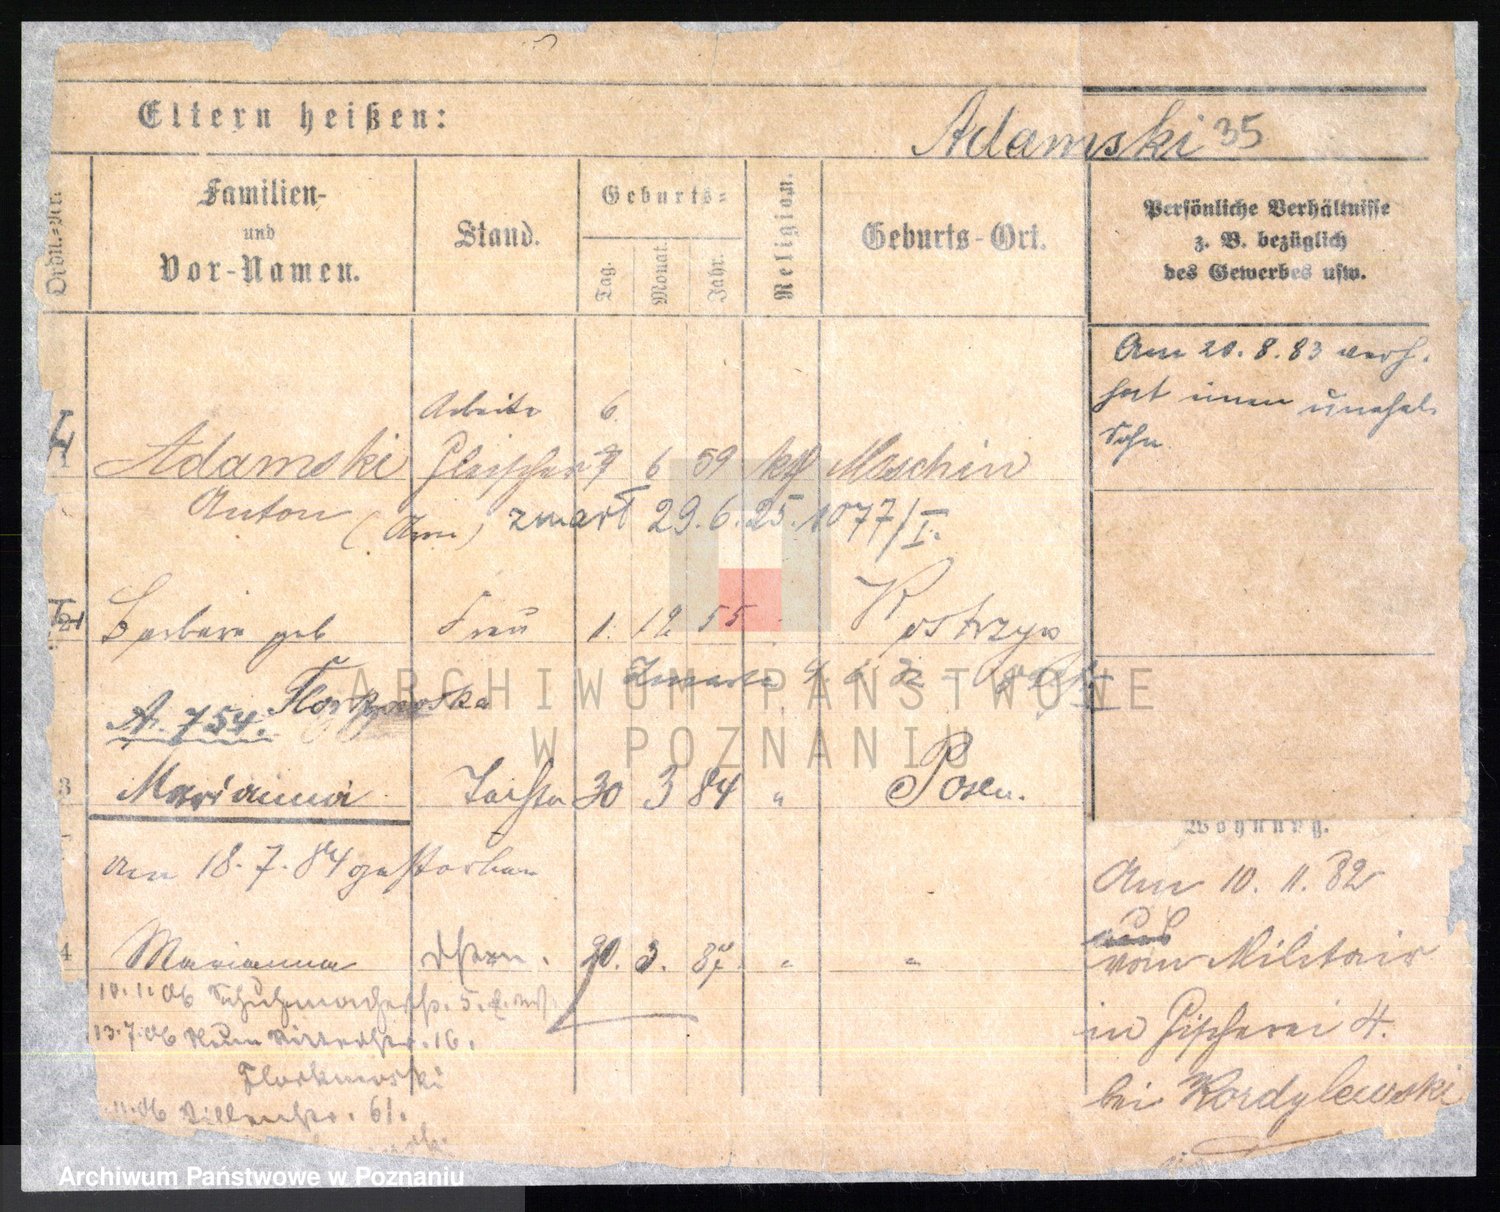 Eltern heißen:
Adamski 35
Ordn.-Nr.
Familien-
und
Vor-Namen.
Stand.
Geburts-
Tag.
Monat.
Jahr.
Religion.
Geburts-Ort.
Persönliche Verhältnisse
z. B. bezüglich
des Gewerbes usw.
Am 20. 8. 83
hat einen unehel.
Sohn
6
1 Adamski Fleischer 6 59 kath Moschin
Anton zmarł 29.6.25. 1077/I.
2 Barbara geb Frau 1. 12 55 Kostrzyn
A. 754.
3 Marianna Tochter 30 3 84 " Posen.
am 18. 7. 84 gestorben
4 Marianna 20. 3. 87. " "
10.1.06 Schuhmacherstr. 5.
13.7.06 16.
06 61.
Wohnung.
Am 10. 11. 82
vom Militair
in Fischerei 4.
bei Kordylewski
ARCHIWUM PAŃSTWOWE
W POZNANIU
Archiwum Państwowe w Poznaniu